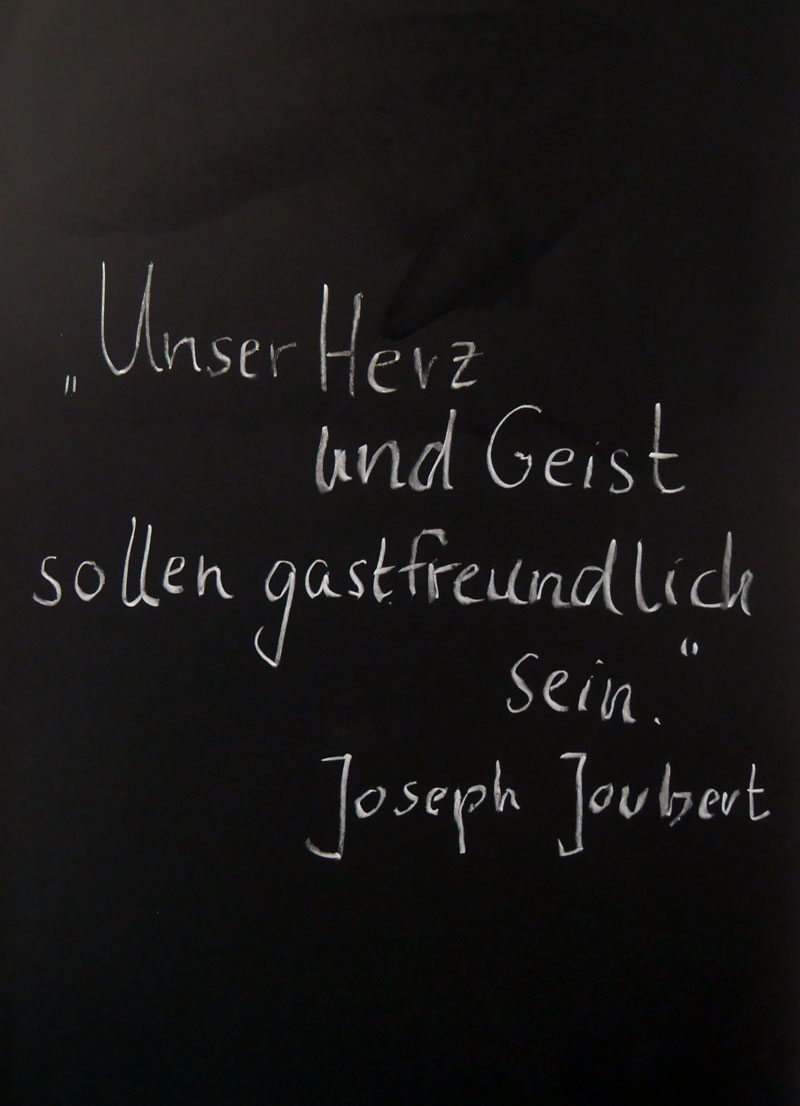 „Unser Herz
und Geist
sollen gastfreundlich
sein.“
Joseph Joubert